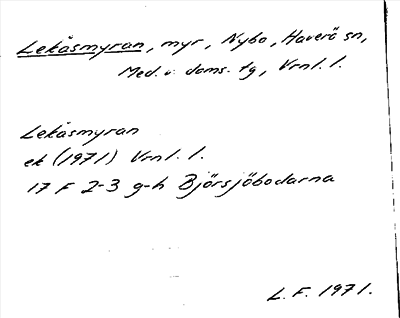 Lekåsmyran, myr, Nybo, Haverö sn,
Med. v. doms. tg, Vrnl. l.
Lekåsmyran
ek (1971) Vrnl. l.
17 F 2-3 g-h Björsjöbodarna
L. F. 1971.